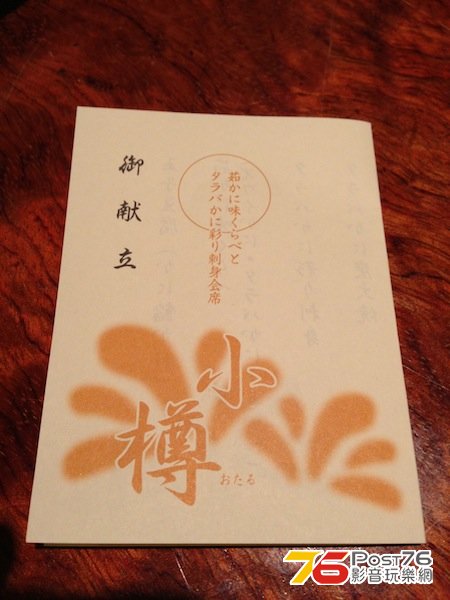 御献立
茹かに味くらべと
タラバかに彩り刺身会席
小樽
おたる
76 Post76
影音玩樂網